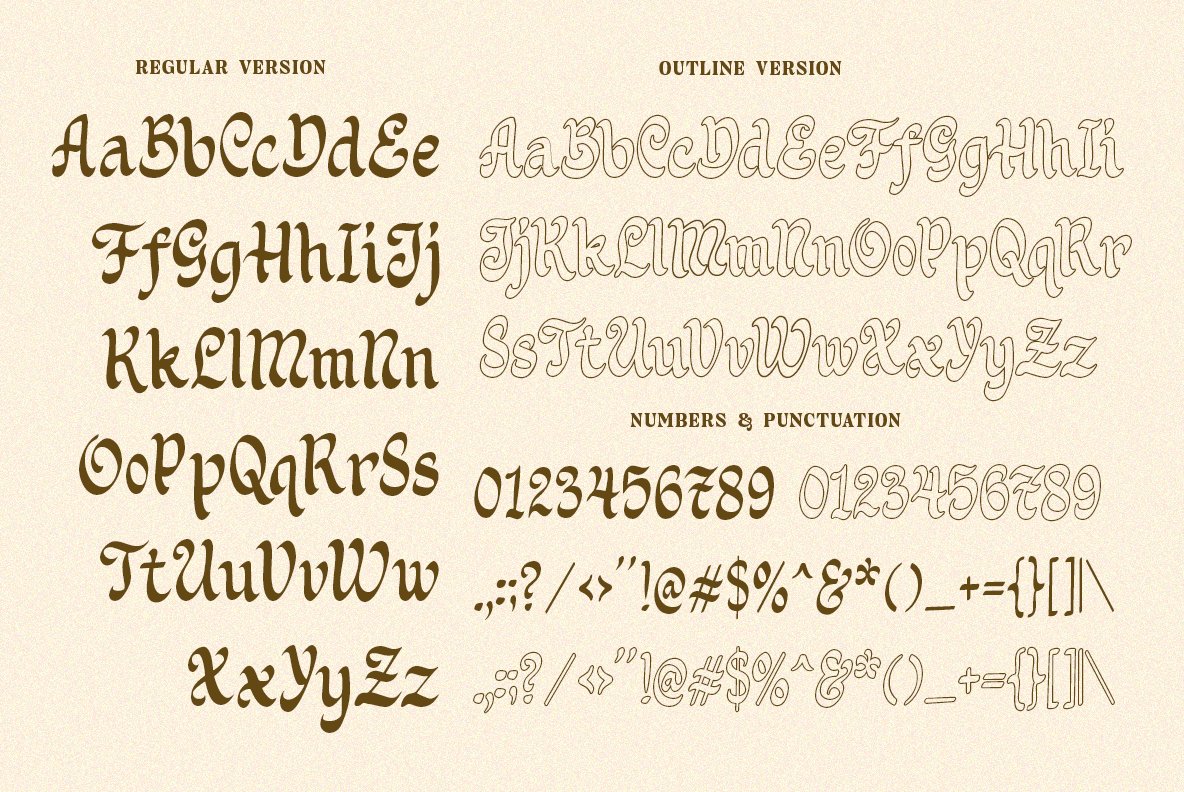 REGULAR VERSION
AaBbCcDdEe
FfGgHhIiJj
KkLlMmNn
OoPpQqRrSs
TtUuVvWw
XxYyZz
OUTLINE VERSION
AaBbCcDdEeFfGgHhIi
JjKkLlMmNnOoPpQqRr
SsTtUuVvWwXxYyZz
NUMBERS & PUNCTUATION
0123456789 0123456789
.,:;?/<>"!@#$%^&*()_+={}[]|\
.,:;?/<>"!@#$%^&*()_+={}[]|\